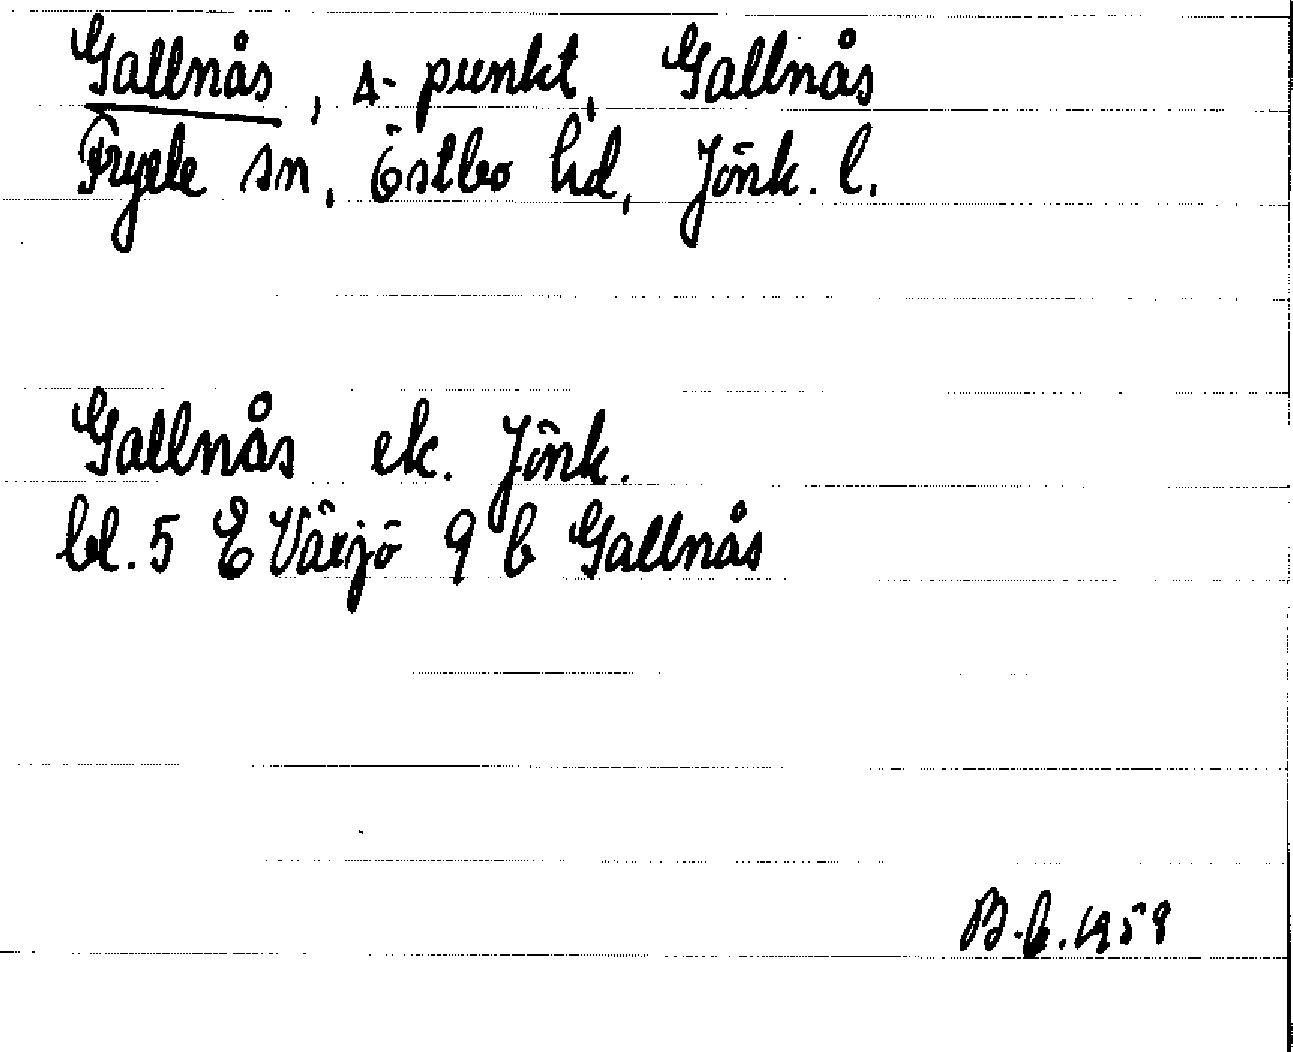 Gallnås, Δ-punkt, Gallnås
Fryele sn, Östbo hd, Jönk. l.
Gallnås ek. Jönk.
bl. 5 E Värjö 9 b Gallnås
B-b. 1959